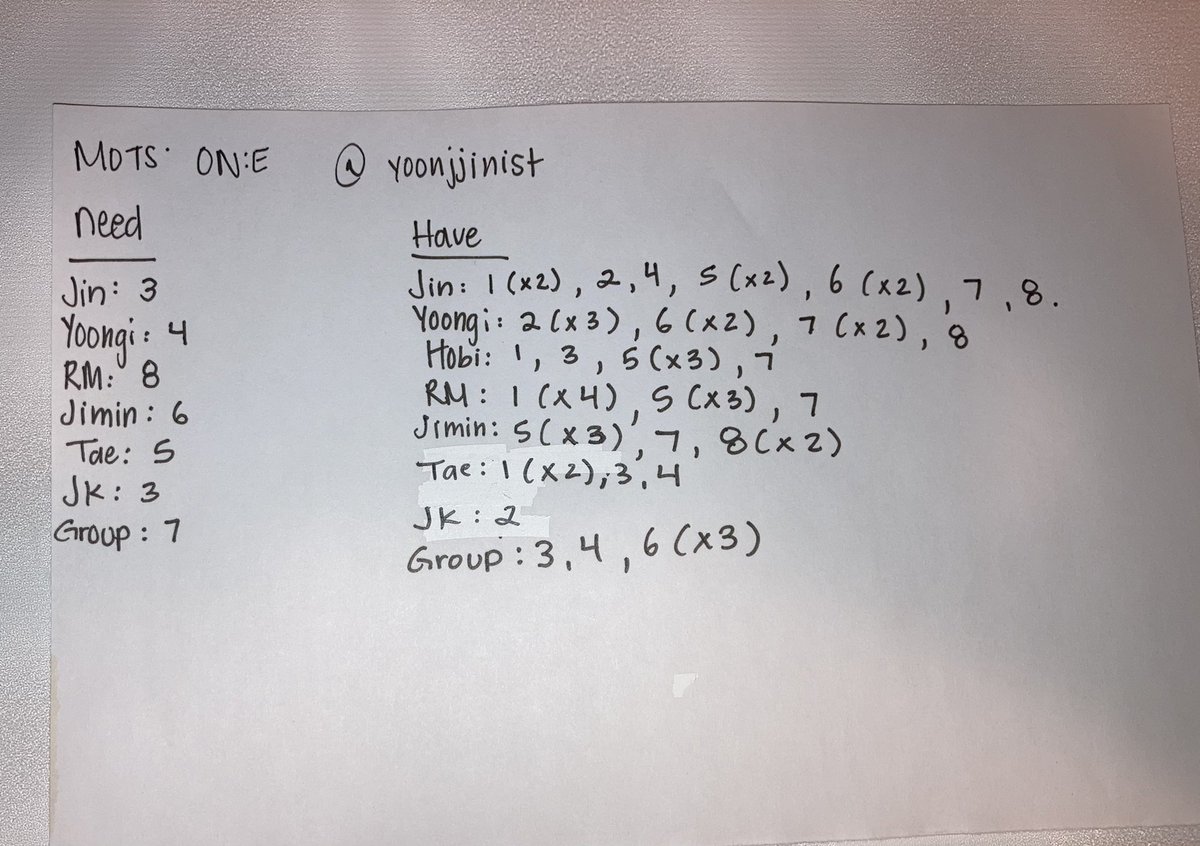 MOTS: ON:E @ yoonjjinist
need
Jin: 3
Yoongi: 4
RM: 8
Jimin: 6
Tae: 5
JK: 3
Group: 7
Have
Jin: 1 (x2), 2, 4, 5 (x2), 6 (x2), 7, 8.
Yoongi: 2 (x3), 6 (x2), 7 (x2), 8
Hobi: 1, 3, 5 (x3), 7
RM: 1 (x4), 5 (x3), 7
Jimin: 5 (x3), 7, 8 (x2)
Tae: 1 (x2), 3, 4
JK: 2
Group: 3, 4, 6 (x3)